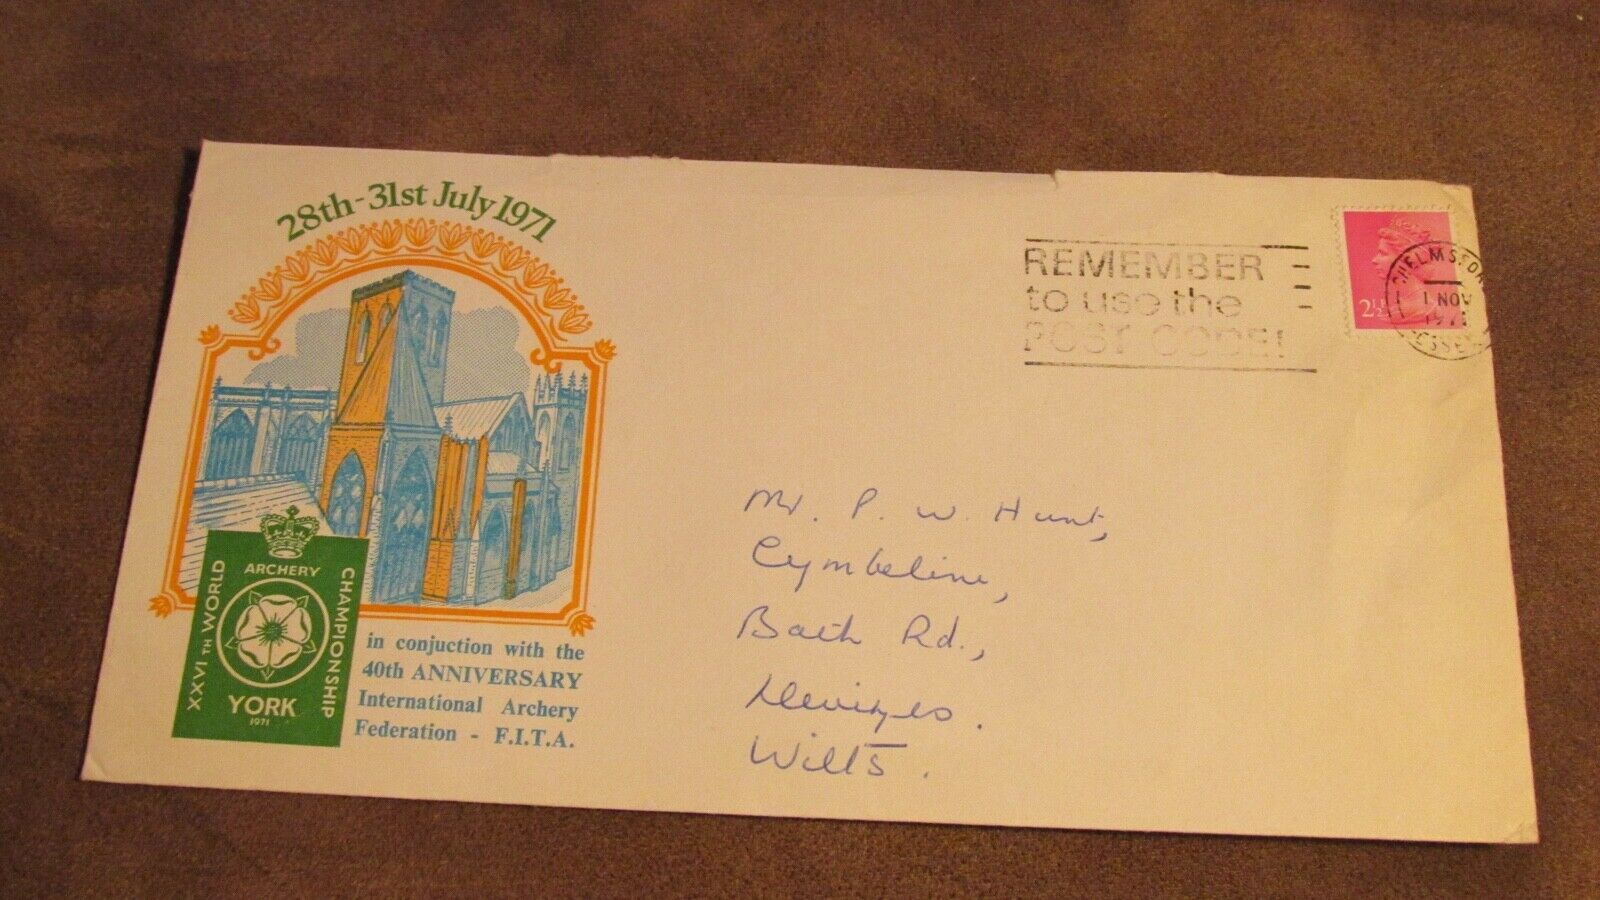 28th-31st July 1971
XXVI TH WORLD
ARCHERY
CHAMPIONSHIP
YORK
1971
in conjuction with the
40th ANNIVERSARY
International Archery
Federation - F.I.T.A.
REMEMBER
to use the
POST CODE!
2½P
CHELMSFORD
1 NOV
1971
ESSEX
Mr. P. W. Hunt,
Cymbeline,
Bath Rd.,
Devizes.
Wilts.